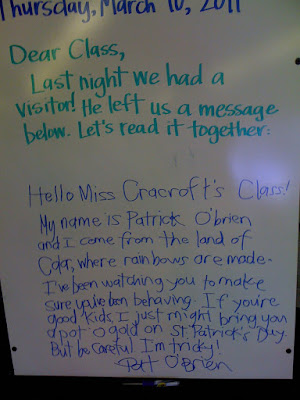 Thursday, March 10, 2011
Dear Class,
Last night we had a
visitor! He left us a message
below. Let's read it together:
Hello Miss Cracroft's Class!
My name is Patrick O'brien
and I come from the land of
Color, where rainbows are made.
I've been watching you to make
sure you've been behaving. If you're
good kids I just might bring you
a pot o gold on St. Patrick's Day.
But be careful I'm tricky!
Patt O'Brien